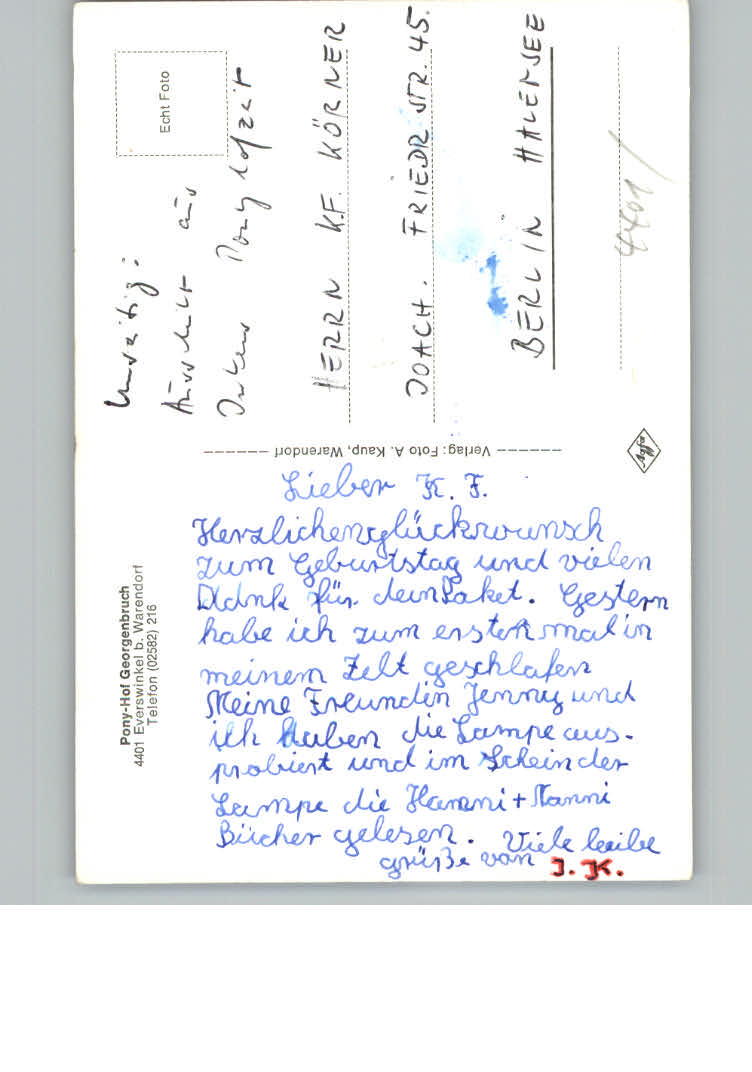 Pony-Hof Georgenbruch
4401 Everswinkel b. Warendorf
Telefon (02582) 216
Lieber K. F.
Herzlichenglückwunsch
zum Geburtstag und vielen
Ddank für dein Paket. Gestern
habe ich zum ersten mal in
meinem Zelt geschlafen
Meine Freundin Jenny und
ich haben die Lampe aus-
probiert und im Schein der
Lampe die Hanni + Nanni
Bücher gelesen. Viele leibe
grüße von J. K.
Verlag: Foto A. Kaup, Warendorf
Echt Foto
Umseitig:
Ausschnitt aus
Ponyhofzeit
HERRN K.F. KÖRNER
JOACH. FRIEDR. STR. 45.
BERLIN HALENSEE
4401/